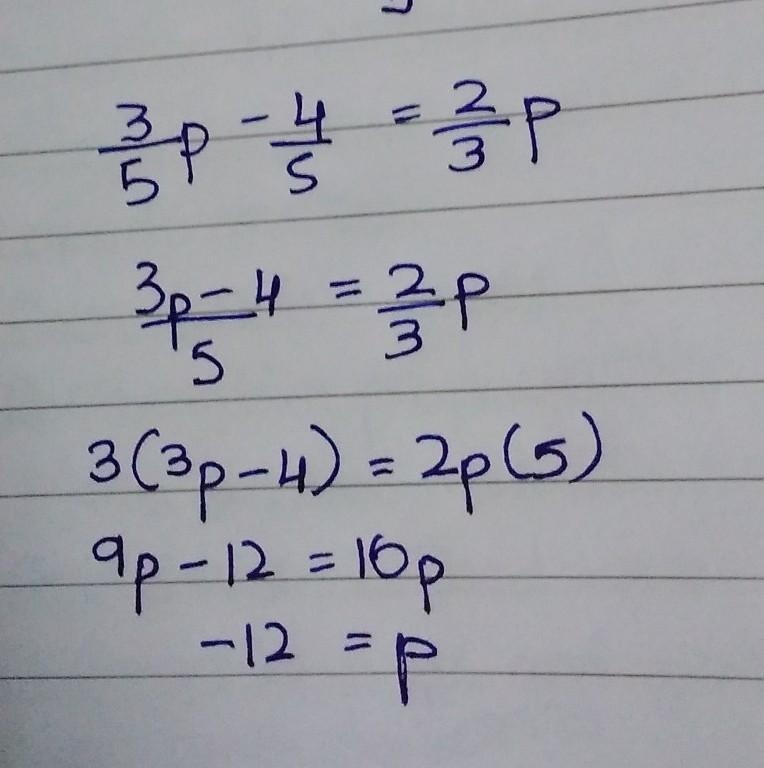 3/5 p - 4/5 = 2/3 p
3p - 4/5 = 2/3 p
3(3p - 4) = 2p(5)
9p - 12 = 10p
-12 = p